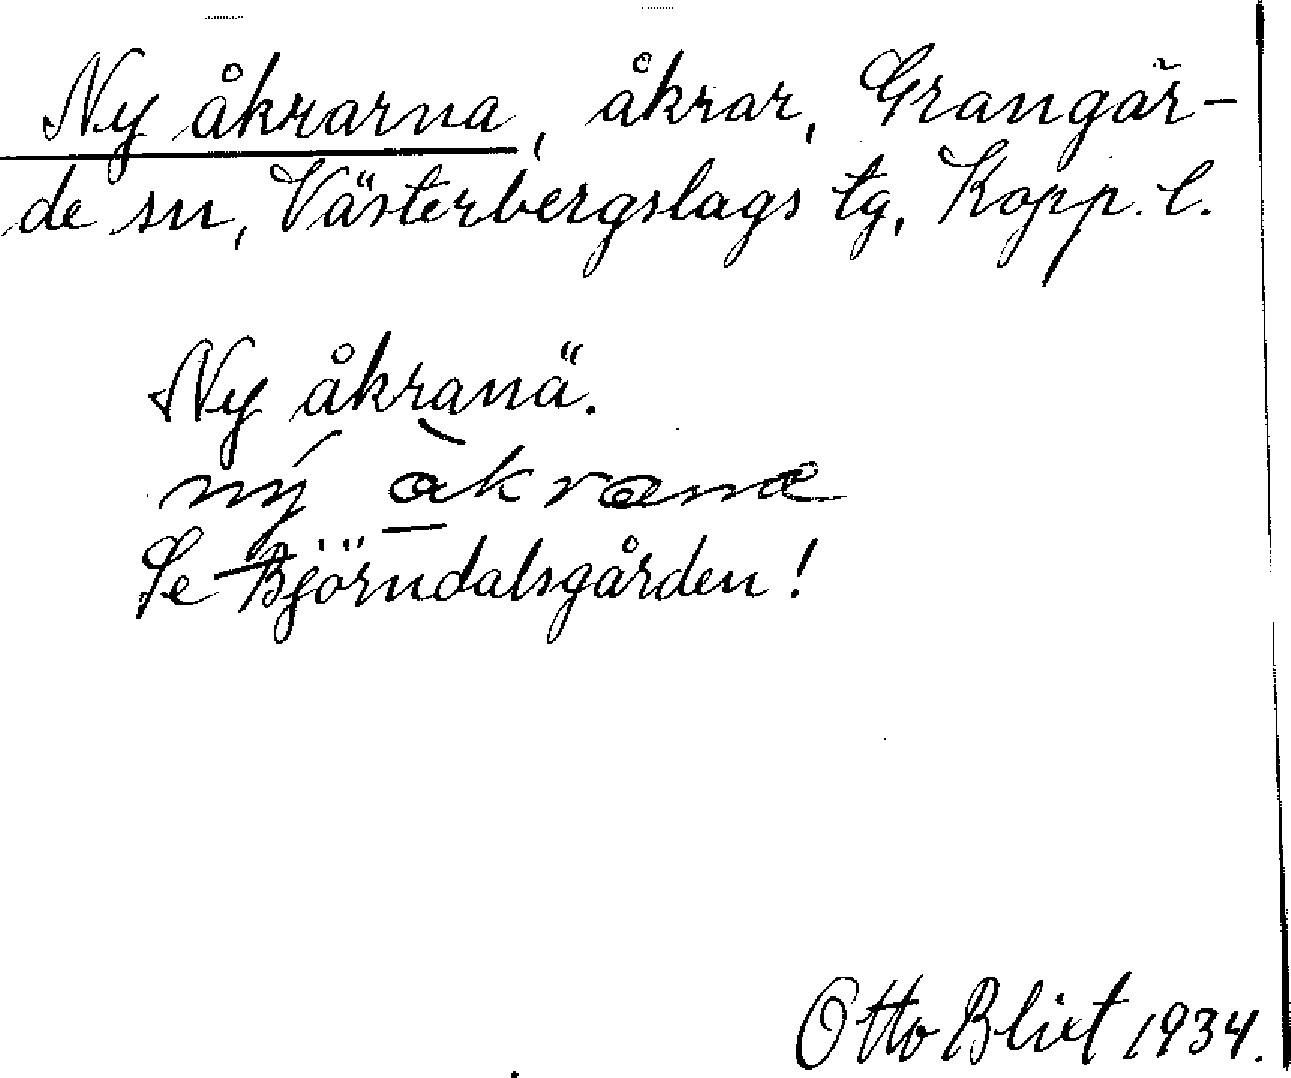 Ny åkrarna, åkrar, Grangär-
de sn, Västerbergslags tg, Kopp. l.
Ny åkranä.
ný åkranæ
Se Björndalsgården!
Otto Blixt 1934.